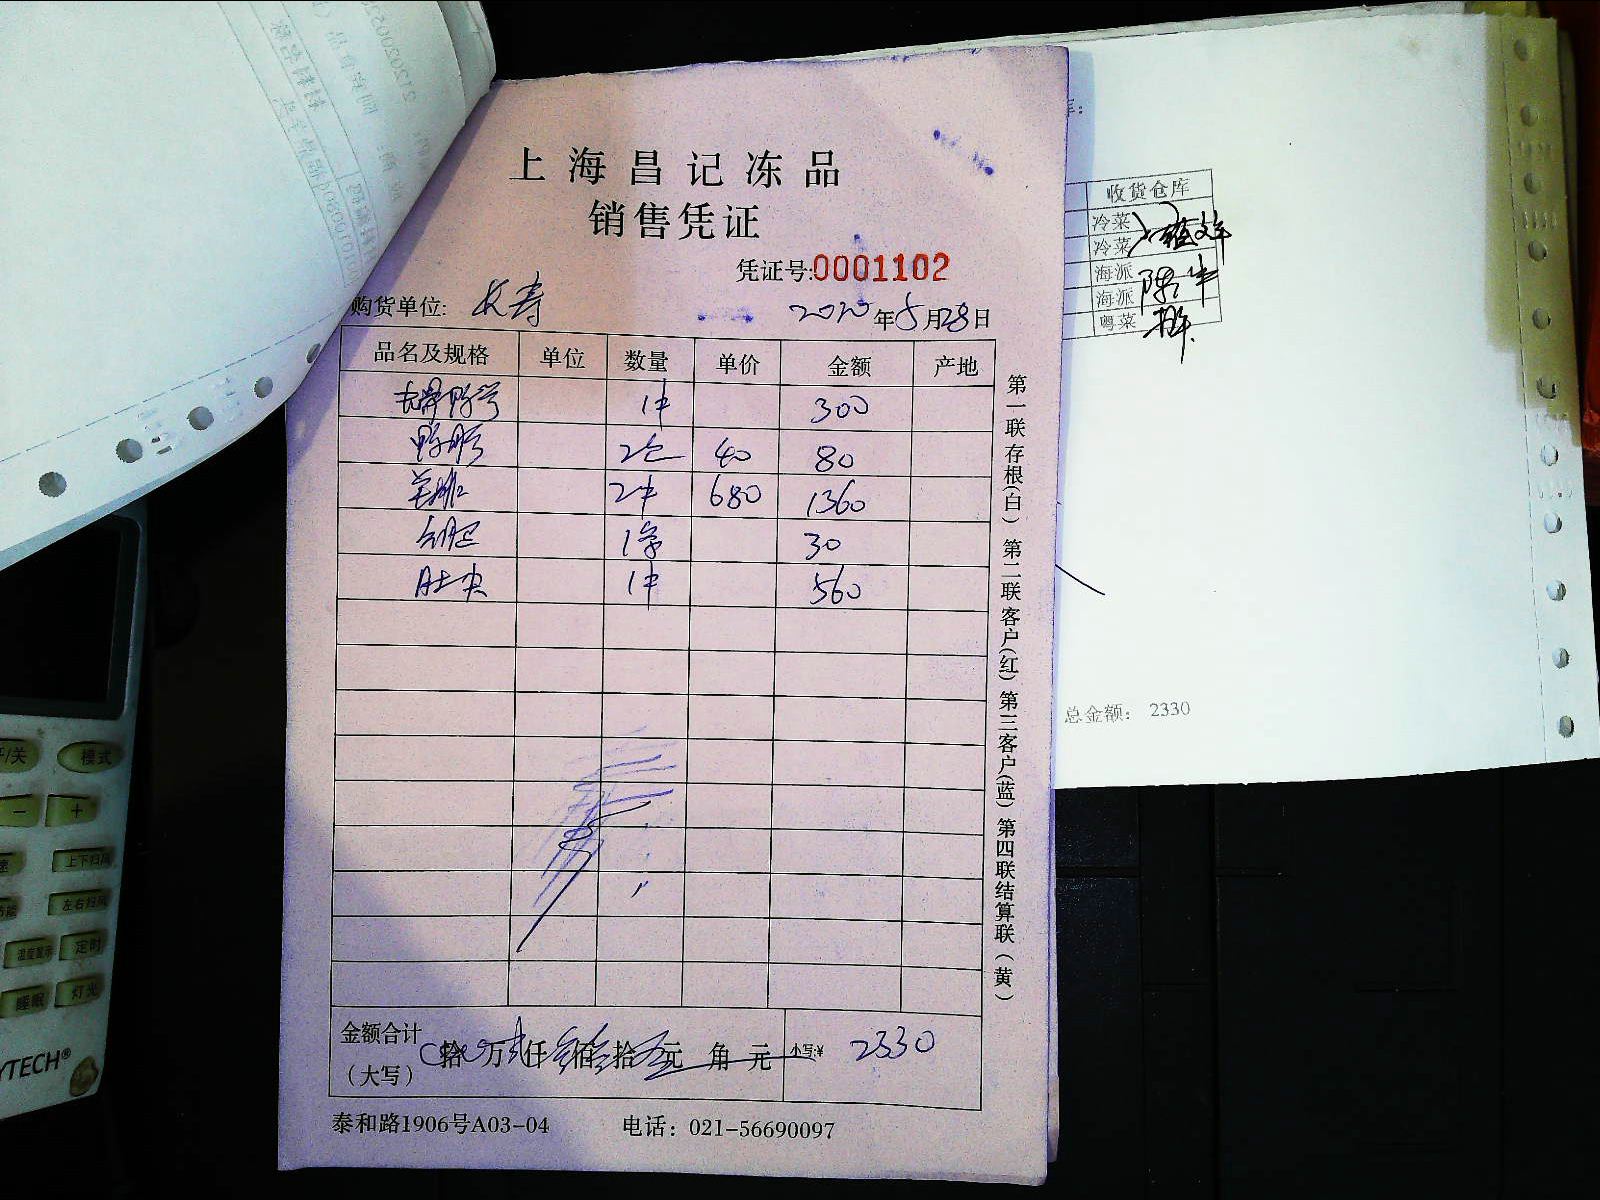 上海昌记冻品
销售凭证
凭证号:0001102
购货单位: 长寿 2020年5月28日
品名及规格 单位 数量 单价 金额 产地
无骨鸭掌 1件 300
鸭肫 2包 40 80
2件 680 1360
1条 30
肚尖 1件 560
金额合计
(大写)
拾 万 仟 佰 拾 元 角 元 小写:¥ 2330
泰和路1906号A03-04 电话：021-56690097
第一联存根(白) 第二联客户(红) 第三客户(蓝) 第四联结算联(黄)
收货仓库
冷菜
冷菜
海派
海派
粤菜
总金额： 2330
模式
－ ＋
上下扫风
左右扫风
定时
睡眠 灯光
YTECH®